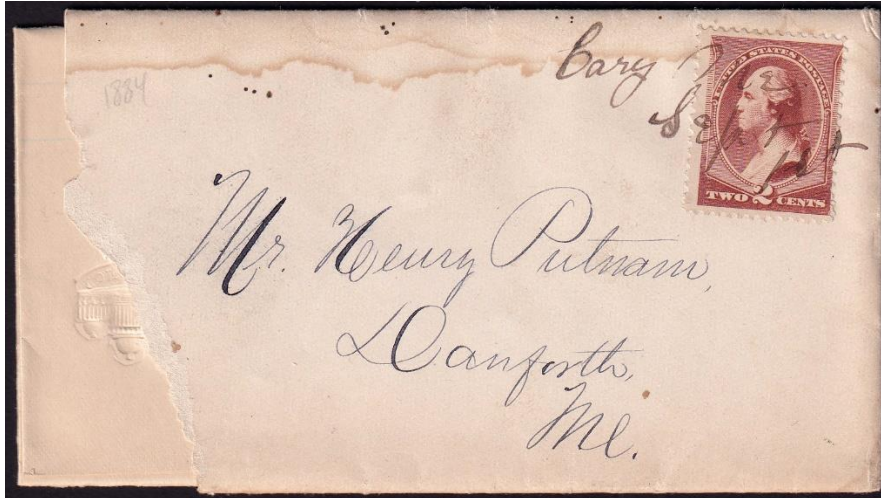 Cary Me
Sept 1st
UNITED STATES POSTAGE
TWO 2 CENTS
1884
Mr. Henry Putnam,
Danforth,
Me.